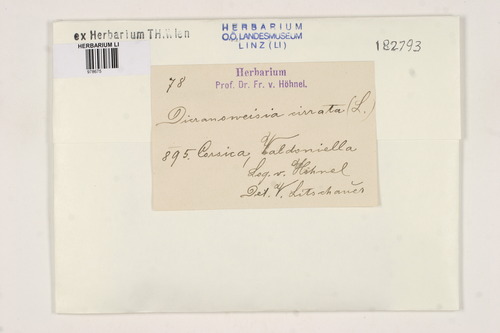 ex Herbarium TH.Wien
HERBARIUM LI
HERBARIUM
O.Ö. LANDESMUSEUM
LINZ (LI)
182793
78
Herbarium
Prof. Dr. Fr. v. Höhnel.
Dicranoweisia cirrata (L.)
895. Corsica, Valdoniella
Leg. v. Höhnel
Det. V. Litschauer